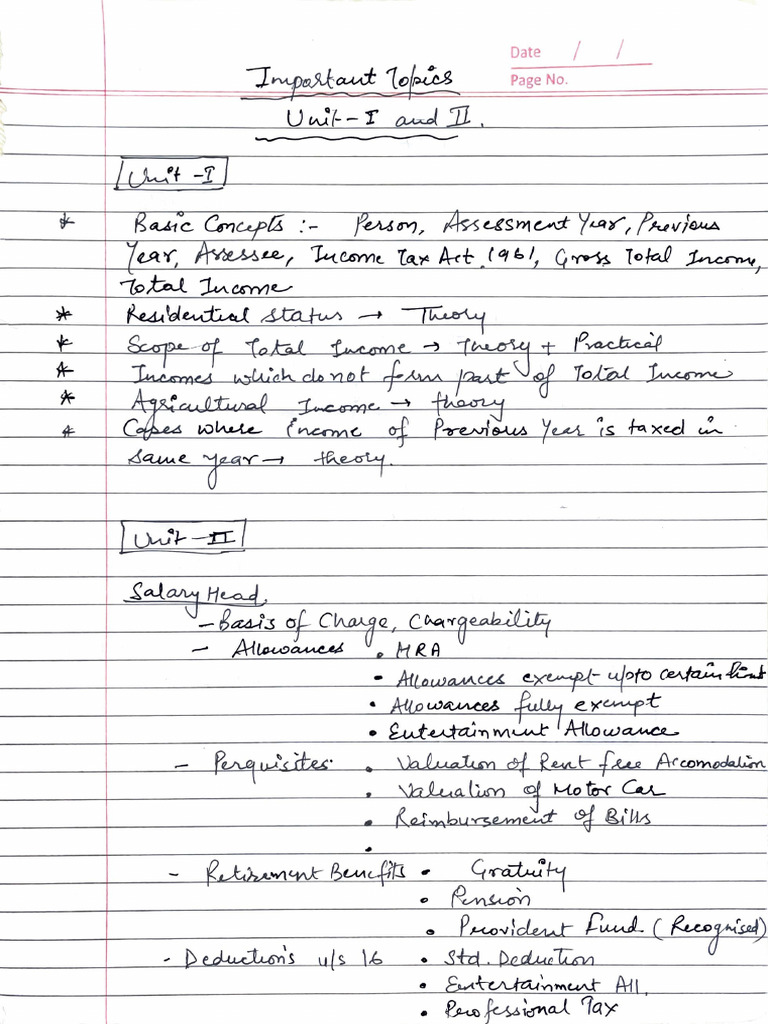 Date / /
Page No.
Important Topics
Unit-I and II.
Unit-I
* Basic Concepts :- Person, Assessment Year, Previous
Year, Assessee, Income Tax Act, 1961, Gross Total Income,
Total Income
* Residential Status → Theory
* Scope of Total Income → Theory + Practical
* Incomes which do not form part of Total Income
* Agricultural Income → theory
* Cases where income of Previous Year is taxed in
same year → theory.
Unit-II
Salary Head.
- Basis of Charge, Chargeability
- Allowances • HRA
• Allowances exempt upto certain limit
• Allowances fully exempt
• Entertainment Allowance
- Perquisites • Valuation of Rent free Accomodation
• Valuation of Motor Car
• Reimbursement of Bills
•
- Retirement Benefits • Gratuity
• Pension
• Provident Fund. (Recognised)
- Deduction's u/s 16 • Std. Deduction
• Entertainment All.
• Professional Tax